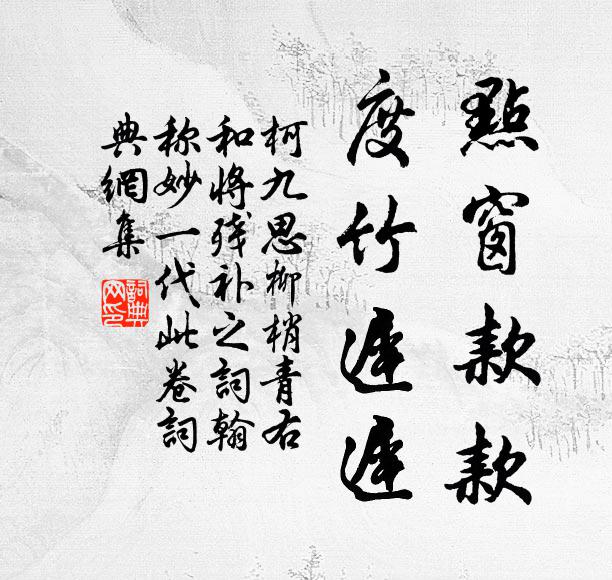 點窗款款
度竹遲遲
柯九思柳梢青右
和將殘补之詞翰
称妙一代此卷詞
典網集
詞典
网印